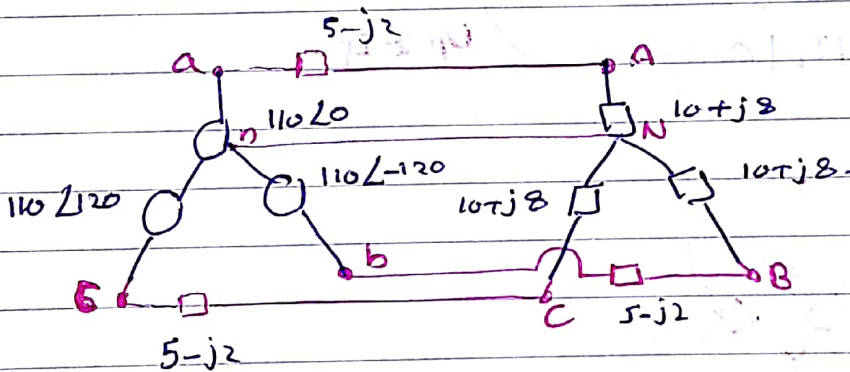 5-j2
a A
110∠0 n N 10+j8
110∠120 110∠-120 10+j8 10+j8
b B
C C 5-j2
5-j2